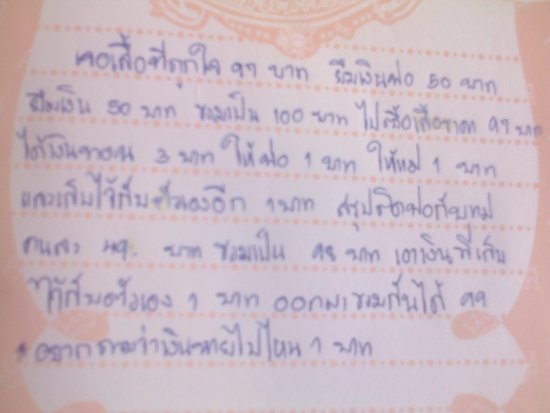 เจอเสื้อที่ถูกใจ 97 บาท ยืมเงินพ่อ 50 บาท
ยืมเงิน 50 บาท รวมเป็น 100 บาท ไปซื้อเสื้อราคา 97 บาท
ได้เงินทอน 3 บาท ให้พ่อ 1 บาท ให้แม่ 1 บาท
และเก็บไว้กับตัวเองอีก 1 บาท สรุปติดพ่อกับแม่
คนละ 49 บาท รวมเป็น 98 บาท เอาเงินที่เก็บ
ไว้กับตัวเอง 1 บาท ออกมารวมกันได้ 99
* อยากถามว่าเงินหายไปไหน 1 บาท